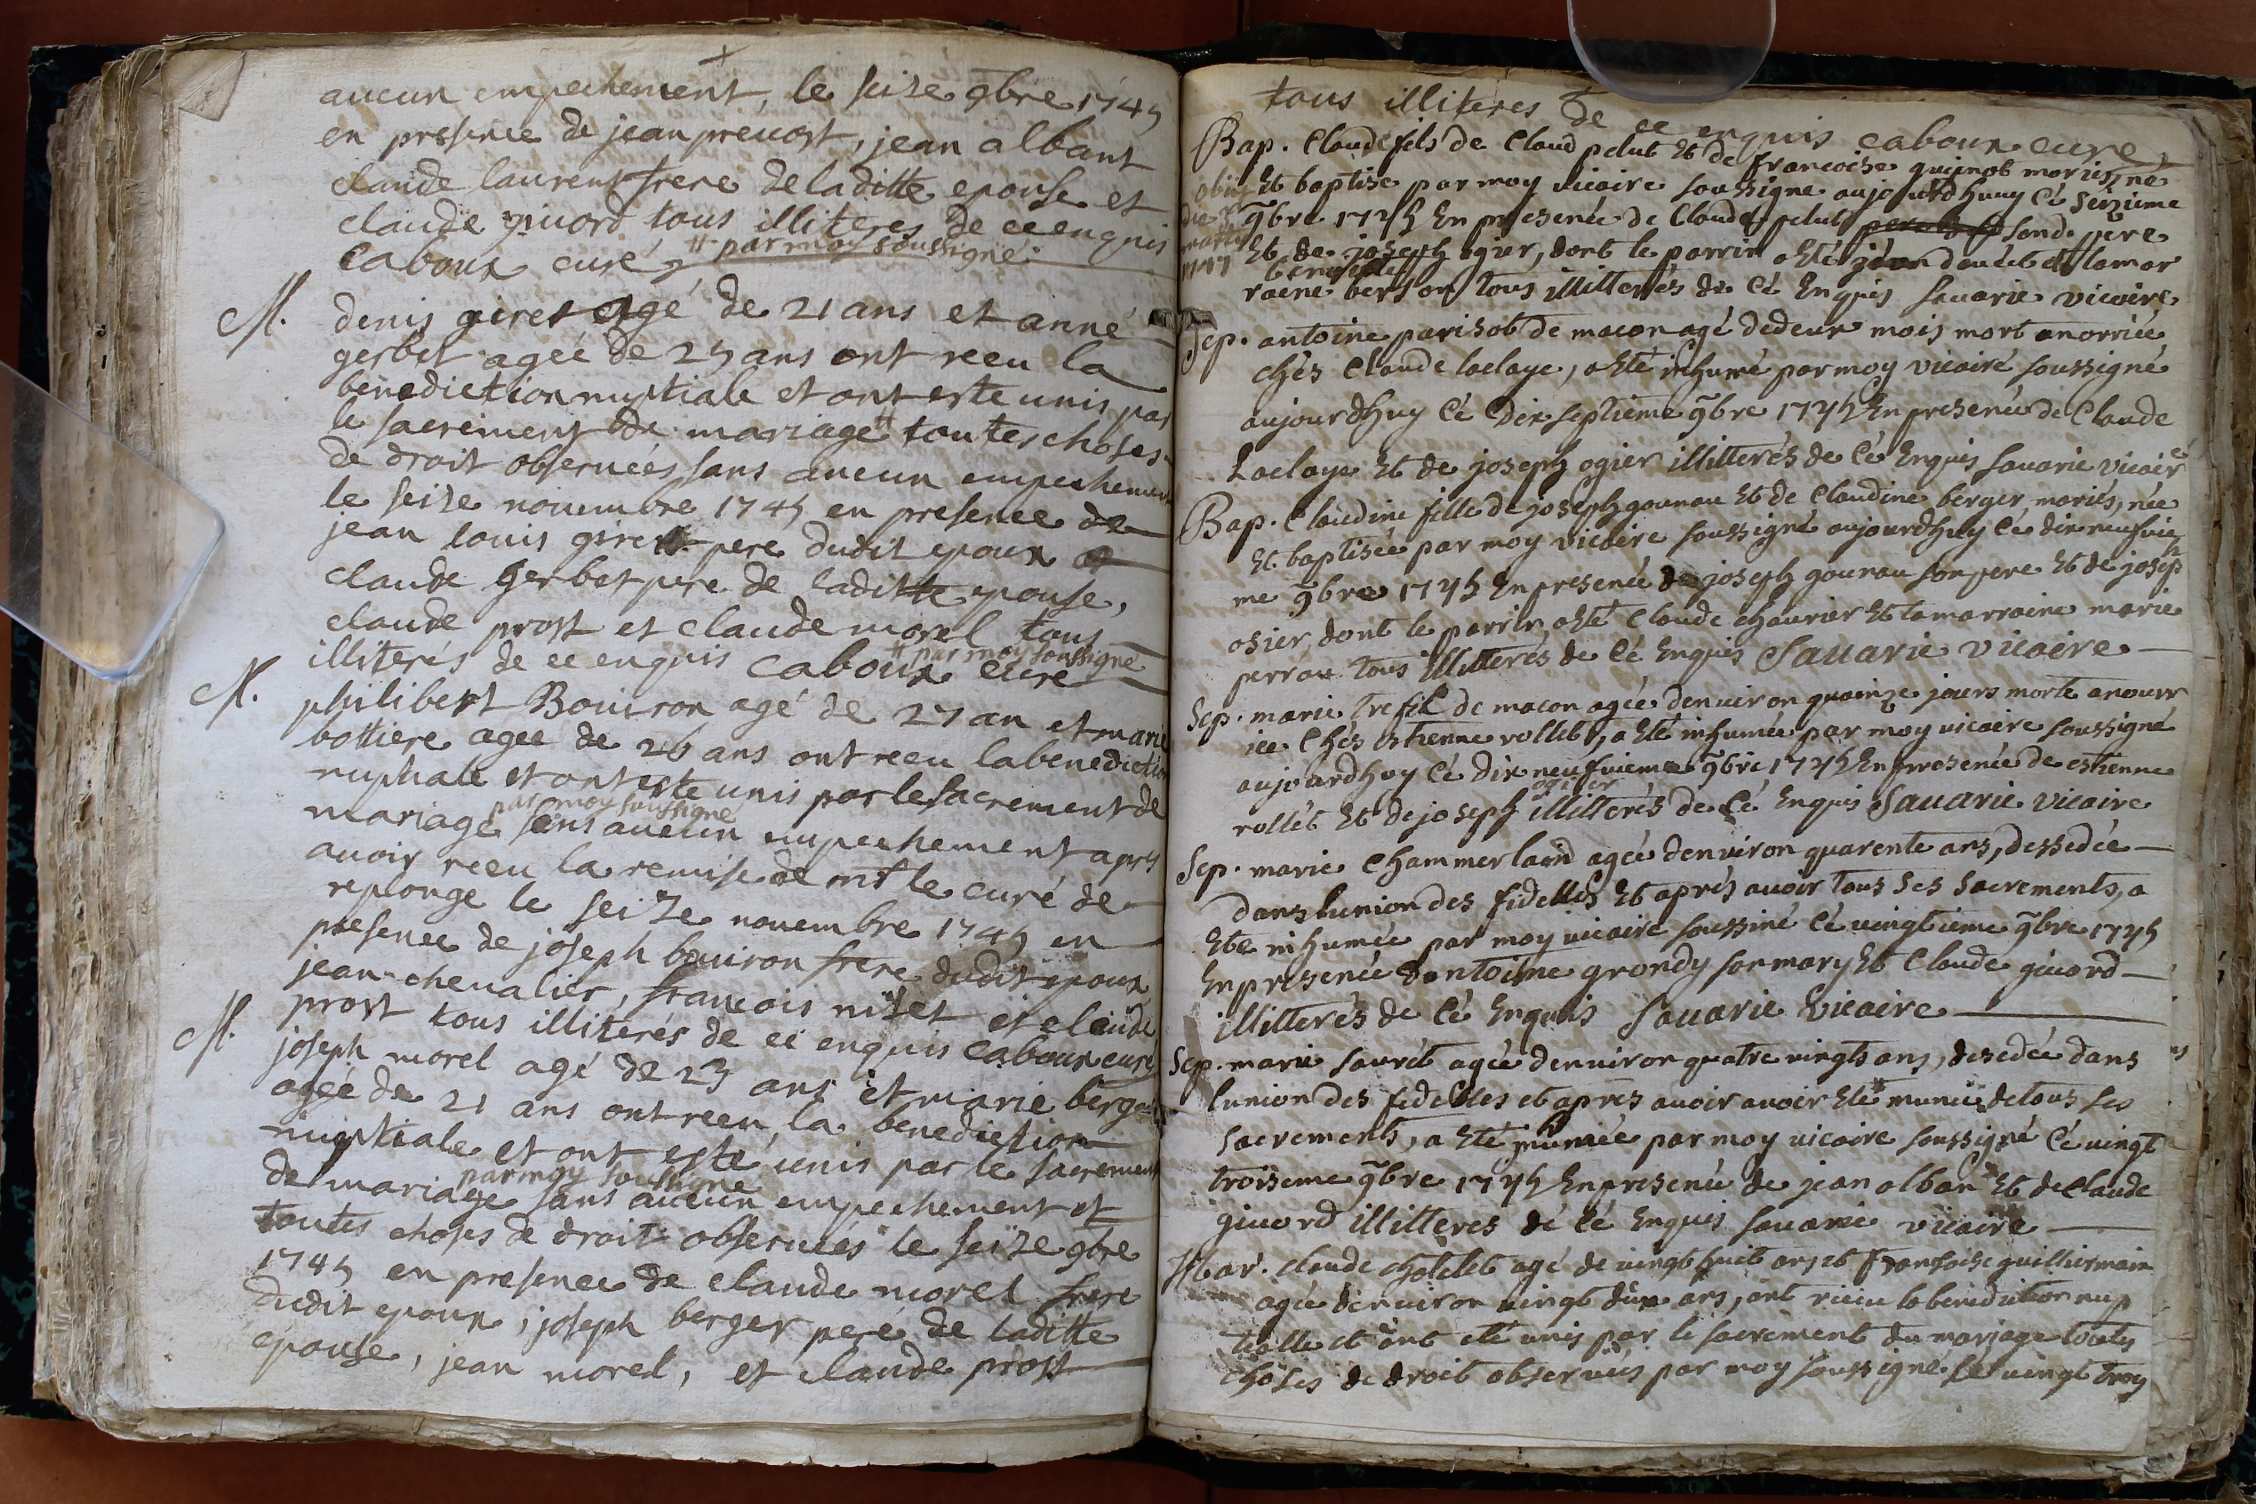 aucun empechement, le seize 9bre 1745
en presence de jean prevost, jean albant
claude laurent frere de laditte epouse et
claude givord tous illiteres de ce enquis
Caboux curé # par moy soussigné
M. denis giret agé de 21 ans et anne
gerbet ageé de 25 ans ont receu la
benediction nuptiale et ont esté unis par
le sacrement de mariage # toutes choses
de droit observeés sans aucun empechement
le seize novembre 1745 en presence de
jean louis giret pere dudit epoux et
claude gerbet pere de laditte epouse,
claude prost et claude morel tous
illiterés de ce enquis Caboux curé # par moy soussigné
M. philibert Bouiron agé de 27 an et marie
bottiere agee de 26 ans ont receu la benediction
nuptiale et ont esté unis par le sacrement de
mariage par moy soussigné sans aucun empechement apres
avoir receu la remise de mr le curé de
replonge le seize novembre 1745 en
presence de joseph bouiron frere dudit epoux
jean chevalier, francois nizet et claude
prost tous illiterés de ce enquis Caboux curé
M. joseph morel agé de 23 ans et marie berger
ageé de 21 ans ont receu la benediction
nuptiale et ont esté unis par le sacrement
de mariage par moy soussigné sans aucun empechement et
toutes choses de droit observeés le seize 9bre
1745 en presence de claude morel frere
dudit epoux, joseph berger pere de laditte
epouse, jean morel, et claude prost
tous illiteres de ce enquis caboux curé
Bap. Claude fils de Claud pelut Et de francoise guinot mariés, né
Et baptise par moy vicaire soussigne aujourdhuy Cé Seizieme
9bre 1745 En presence de Claude pelut sond. pere
Et de joseph ogier, dont le parrin a Eté doucet et la mar
raene benoiste berson tous illitterés de Cé Enquis Savarie vicaire
obiit
die
martii
1747
Sep. antoine parisot de macon agé de deux mois mort anorriée
chés Claude laclaye, a Eté inhumé par moy vicaire soussigné
aujourdhuy Cé dix septieme 9bre 1745 En presence de Claude
Laclaye Et de joseph ogier illitterés de Cé Enquis Savarie vicaire
Bap. Claudine fille de joseph gounau Et de Claudine berger mariés, née
Et baptisée par moy vicaire soussigné aujourdhuy Cé dix neufvie
me 9bre 1745 En presence de joseph gounau son pere Et de joseph
osier, dont le parrin a Eté Claude chavrier Et la marraine marie
perrau tous illitterés de Cé Enquis Savarie vicaire
Sep. marie trefil de macon agée denviron quinze jours morte anourr
iee Chés Estienne rollet, a Eté inhumée par moy vicaire soussigné
aujourdhuy Cé dix neufvieme 9bre 1745 En presence de estienne
rollét Et de joseph ogier illitterés de Cé Enquis Savarie vicaire
Sep. marie Chammerland agée denviron quarente ans, dessedée
dans lunion des fidelles Et aprés avoir tous ses sacrements, a
Ete inhumée par moy vicaire soussiné Cé vingtieme 9bre 1745
En presence dantoine grondy son mary Et Claude givord
illitterés de Cé Enquis Savarie Vicaire
Sep. marie sourét agée denviron quatre vingts ans, desedée dans
lunion des fidelles et apres avoir avoir Eté munie de tous ses
sacrements, a Eté par moy vicaire soussigné Cé vingt
troiseme 9bre 1745 En presence de jean alban Et de Claude
givord illitteres dé Cé Enquis Savarie vicaire
Mar. claude chatelet agé de vingt huit ans et françoise guillermain
agée denviron vingt deux ans, ont rieiu la benediction nup
tialle et ont eté unis par le sacrement du mariage toutes
choses de droit observeés par moy soussigné le vingt troy